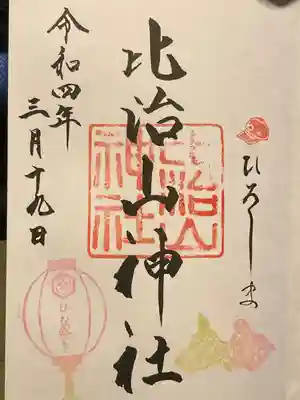 ひろしま
比治山神社
比治山
神社
令和四年
三月十九日